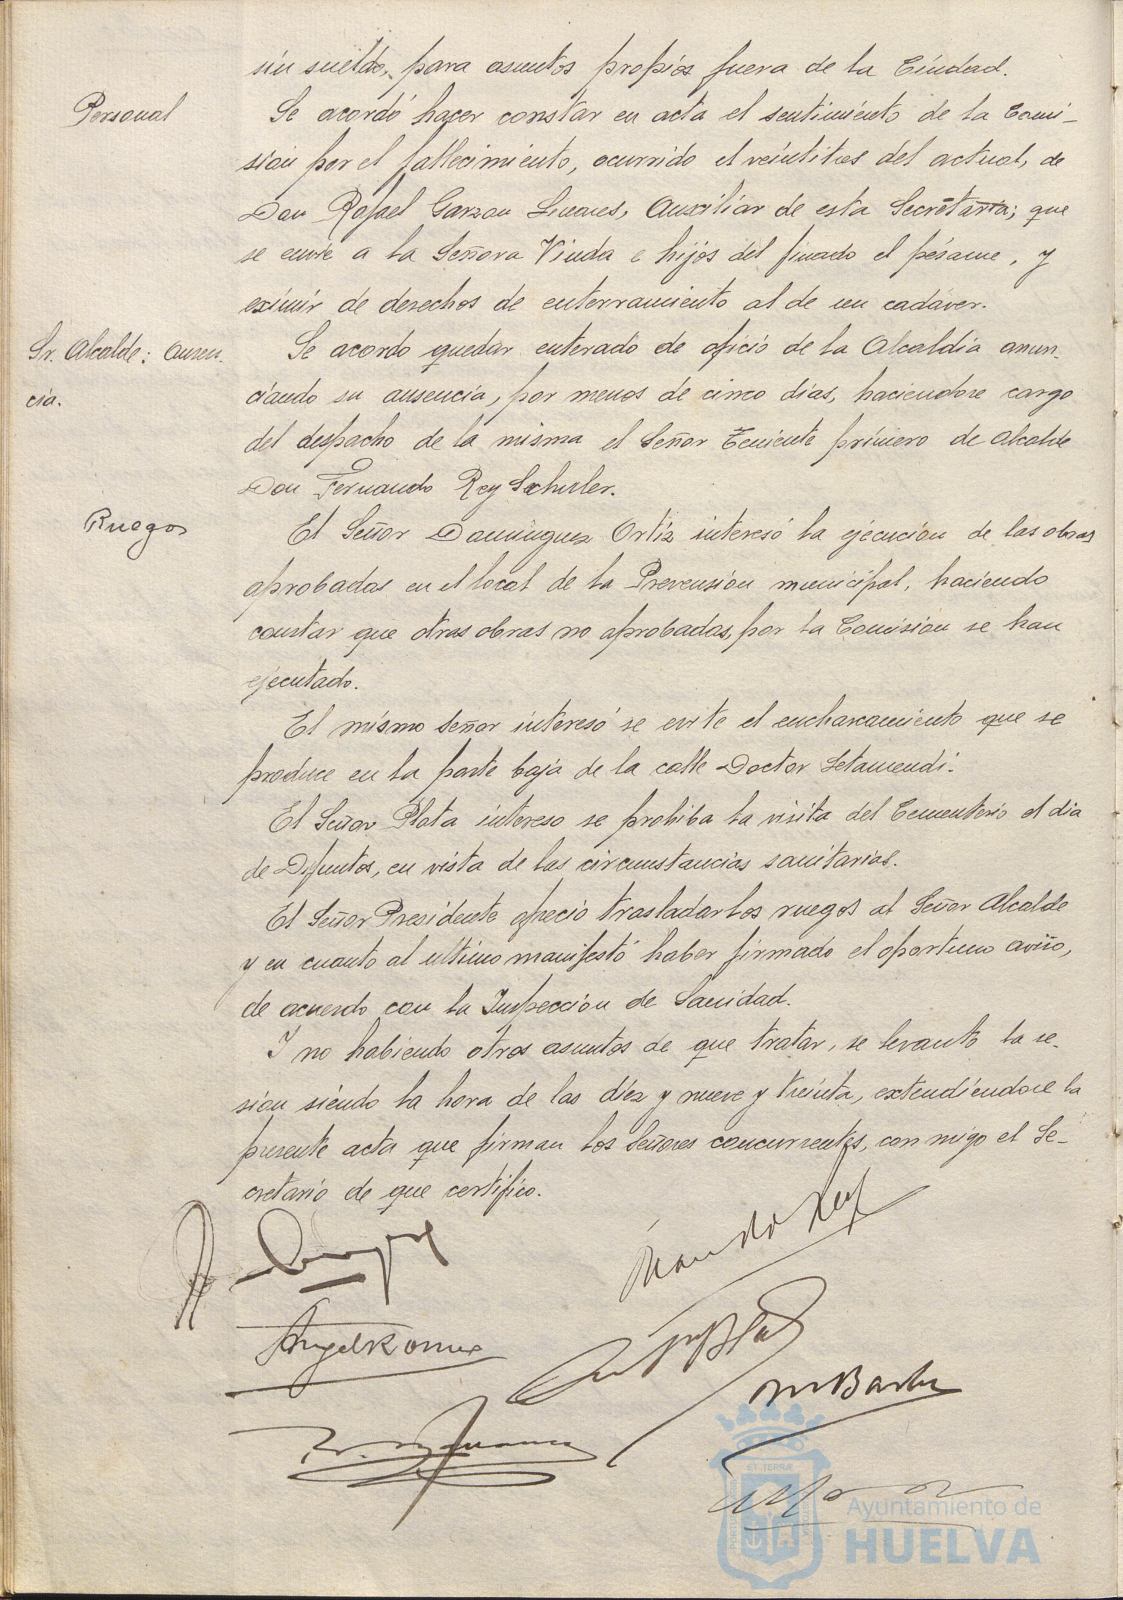 sin sueldo, para asuntos propios fuera de la Ciudad.
Personal
Se acordó hacer constar en acta el sentimiento de la Comi-
sion por el fallecimiento, ocurrido el veintitres del actual, de
Don Rafael Garzon Linares, Auxiliar de esta Secretaria; que
se envie a la Señora Viuda e hijos del finado el pésame, y
eximir de derechos de enterramiento al de un cadáver.
Sr. Alcalde: ausen-
cia.
Se acordo quedar enterado de oficio de la Alcaldia anun-
ciando su ausencia, por menos de cinco dias, haciendose cargo
del despacho de la misma el Señor Teniente primero de Alcalde
Don Fernando Rey Schuler.
Ruegos
El Señor Dominguez Ortiz interesó la ejecucion de las obras
aprobadas en el local de la Prevension municipal, haciendo
constar que otras obras no aprobadas, por la Comision se han
ejecutado.
El mismo Señor interesó se evite el encharcamiento que se
produce en la parte baja de la calle Doctor Letamendi.
El Señor Plata intereso se prohiba la visita del Cementerio el dia
de Difuntos, en vista de las circunstancias sanitarias.
El Señor Presidente ofrecio trasladar los ruegos al Señor Alcalde
y en cuanto al ultimo manifestó haber firmado el oportuno aviso,
de acuerdo con la Inspeccion de Sanidad.
Y no habiendo otros asuntos de que tratar, se levanto la se-
sion siendo la hora de las diez y nueve y treinta, extendiendose la
presente acta que firman los Señores concurrentes, con migo el Se-
cretario de que certifico.
Rey
Angel Romero
M Barba
ET TERRÆ
Ayuntamiento de
HUELVA